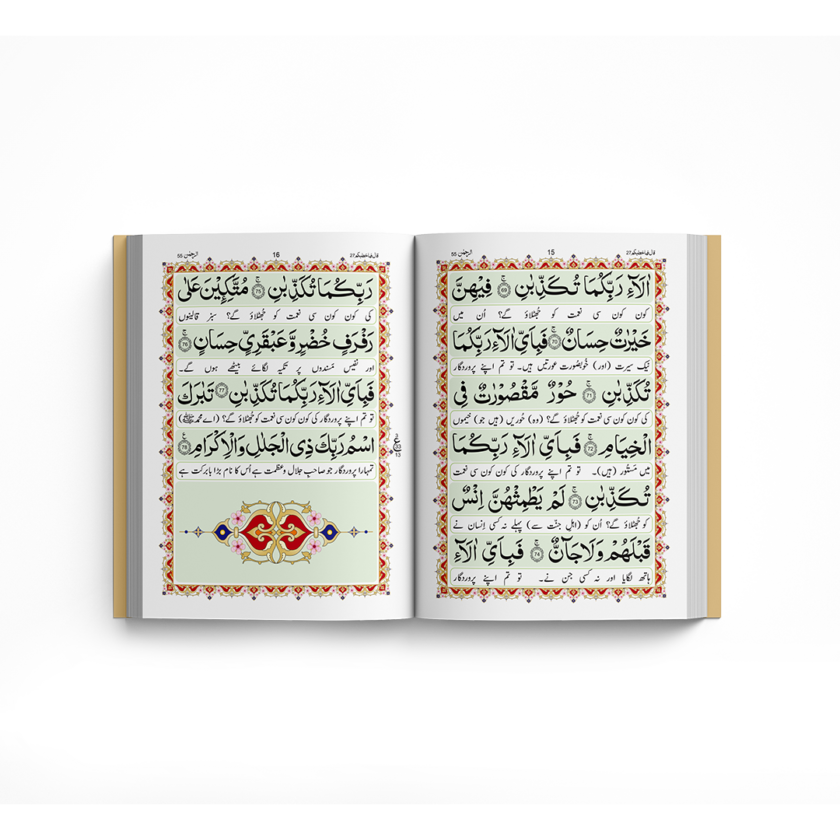 قال فما خطبکم 27
15
الرحمٰن 55
اٰلَآءِ رَبِّكُمَا تُكَذِّبٰنِ ﴿69﴾ فِيْهِنَّ
کون کون سی نعمت کو جھٹلاؤ گے؟ اُن میں
خَيْرٰتٌ حِسَانٌ ﴿70﴾ فَبِاَيِّ اٰلَآءِ رَبِّكُمَا
نیک سیرت (اور) خوبصورت عورتیں ہیں۔ تو تم اپنے پروردگار
تُكَذِّبٰنِ ﴿71﴾ حُوْرٌ مَّقْصُوْرٰتٌ فِي
کی کون کون سی نعمت کو جھٹلاؤ گے؟ (وہ) حُوریں (ہیں جو) خیموں
الْخِيَامِ ﴿72﴾ فَبِاَيِّ اٰلَآءِ رَبِّكُمَا
میں مستُور (ہیں)۔ تو تم اپنے پروردگار کی کون کون سی نعمت
تُكَذِّبٰنِ ﴿73﴾ لَمْ يَطْمِثْهُنَّ اِنْسٌ
کو جھٹلاؤ گے؟ اُن کو (اہل جنّت سے) پہلے نہ کسی اِنسان نے
قَبْلَهُمْ وَلَا جَآنٌّ ﴿74﴾ فَبِاَيِّ اٰلَآءِ
ہاتھ لگایا اور نہ کسی جن نے۔ تو تم اپنے پروردگار
16
الرحمٰن 55
قال فما خطبکم 27
رَبِّكُمَا تُكَذِّبٰنِ ﴿75﴾ مُتَّكِـِٕيْنَ عَلٰى
کی کون کون سی نعمت کو جھٹلاؤ گے؟ سبز قالینوں
رَفْرَفٍ خُضْرٍ وَّعَبْقَرِيٍّ حِسَانٍ ﴿76﴾
اور نفیس مسندوں پر تکیہ لگائے بیٹھے ہوں گے۔
فَبِاَيِّ اٰلَآءِ رَبِّكُمَا تُكَذِّبٰنِ ﴿77﴾ تَبٰرَكَ
تو تم اپنے پروردگار کی کون کون سی نعمت کو جھٹلاؤ گے؟ (اے محمد ﷺ)
اسْمُ رَبِّكَ ذِي الْجَلٰلِ وَالْاِكْرَامِ ﴿78﴾
تمہارا پروردگار جو صاحبِ جلال و عظمت ہے اُس کا نام بڑا بابرکت ہے
ع